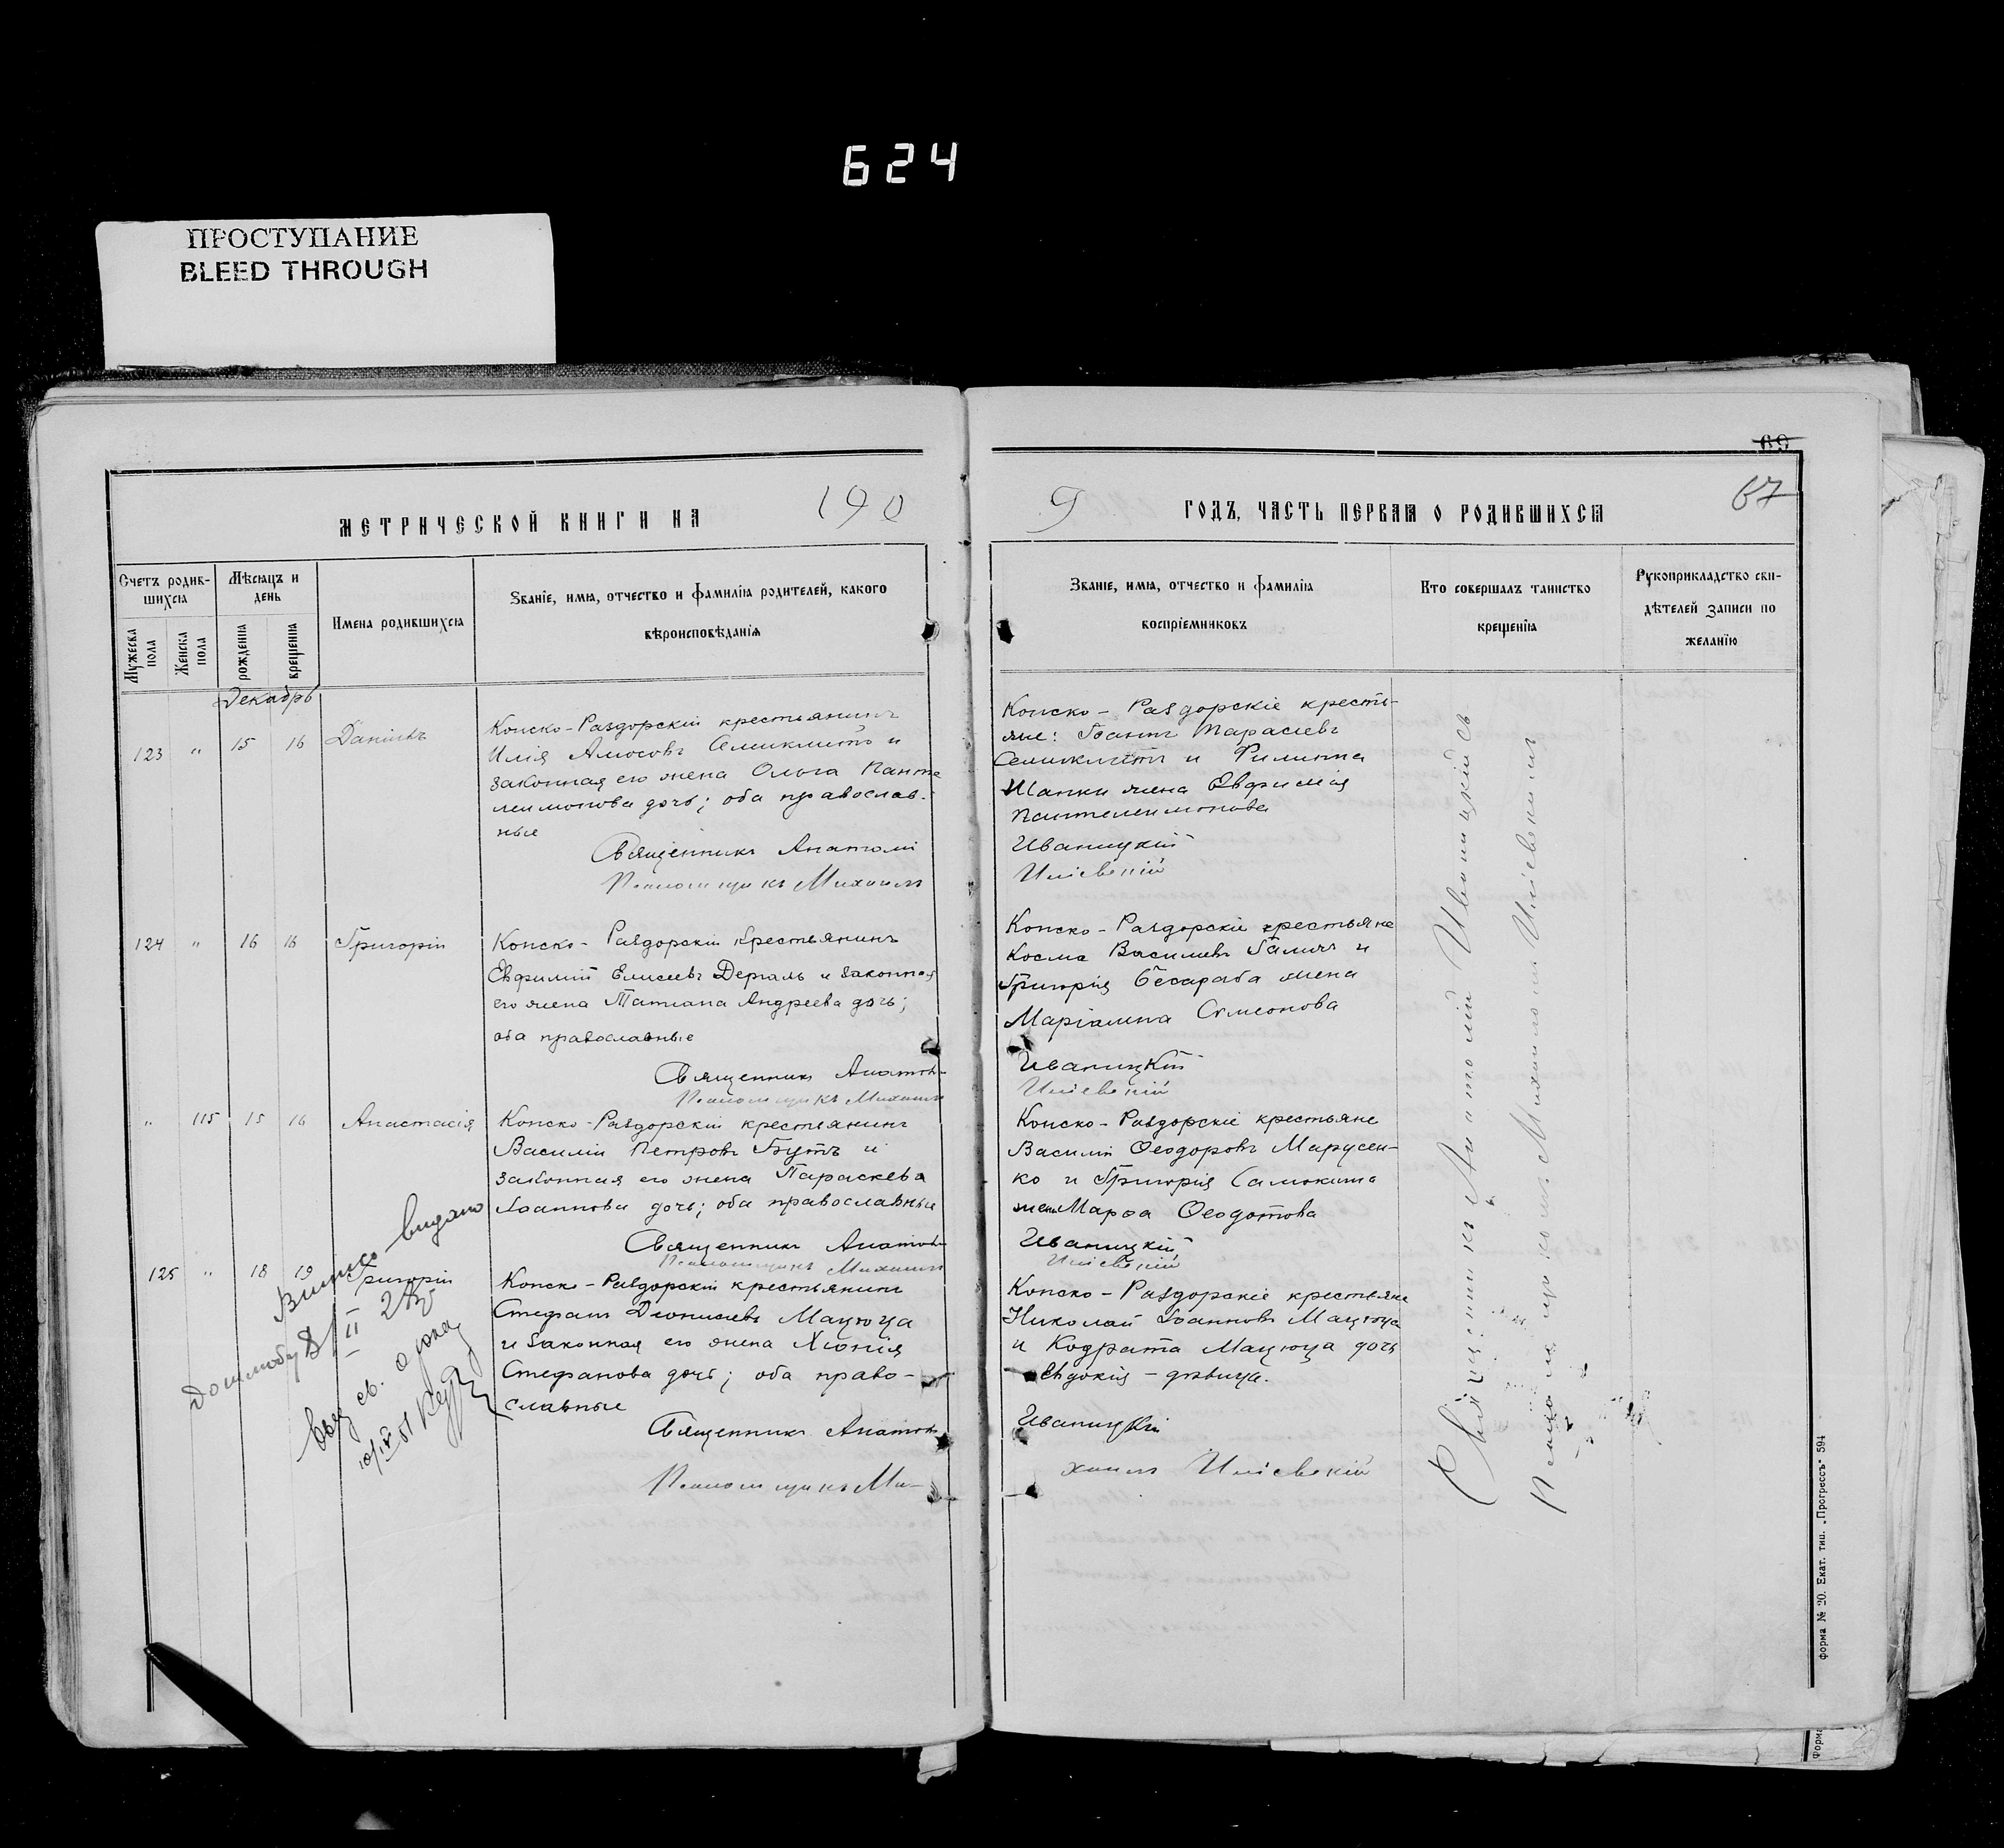 624
ПРОСТУПАНИЕ
BLEED THROUGH
69
67
МЕТРИЧЕСКОЙ КНИГИ НА 190
9 ГОДЪ, ЧАСТЬ ПЕРВАЯ О РОДИВШИХСЯ
Счетъ родив-
шихся
Мужеска пола
Женска пола
Мѣсяцъ и
день
рожденія
крещенія
Имена родившихся
Званіе, имя, отчество и фамилія родителей, какого
вѣроисповѣданія
Званіе, имя, отчество и фамилія
воспріемниковъ
Кто совершалъ таинство
крещенія
Рукоприкладство сви-
дѣтелей записи по
желанію
Декабрь
123 " 15 16 Даніилъ
Конско-Раздорскій крестьянинъ
Илія Амосовъ Семиклитъ и
законная его жена Ольга Панте
леимонова дочь; оба православ-
ные
Священникъ Анатолій
Псаломщикъ Михаилъ
Конско-Раздорскіе кресть-
яне: Іоаннъ Тарасіевъ
Семиклитъ и Филиппа
Шапки жена Евфимія
Пантелеимонова
Иваницкій
Иліевскій
124 " 16 16 Григорій
Конско-Раздорскій крестьянинъ
Евфимій Елисеевъ Дергаль и законная
его жена Татиана Андреева дочь;
оба православные
Священникъ Анатолій
Псаломщикъ Михаилъ
Конско-Раздорскіе крестьяне
Косма Василиевъ Галичъ и
Григорія Бесараба жена
Маріамна Симеонова
Иваницкій
Иліевскій
" 115 15 16 Анастасія
Конско-Раздорскій крестьянинъ
Василій Петровъ Бутъ и
законная его жена Параскева
Іоаннова дочь; оба православные
Священникъ Анатолій
Псаломщикъ Михаилъ
Конско-Раздорскіе крестьяне
Василій Ѳеодоровъ Марусен-
ко и Григорія Самокиша
жена Марѳа Ѳеодотова
Иваницкій
Иліевскій
125 " 18 19 Григорій
Конско-Раздорскій крестьянинъ
Стефанъ Діонисіевъ Мацюца
и законная его жена Хіонія
Стефанова дочь; оба право-
славные
Священникъ Анатолій
Псаломщикъ Ми-
Конско-Раздорскіе крестьяне
Николай Іоанновъ Мацюца
и Кодрата Мацюца дочь
Евдокія - дѣвица.
Иваницкій
хаилъ Иліевскій
видано
Священникъ Анатолій Иваницкій съ
Псаломщикомъ Михаиломъ Иліевскимъ
Форма № 20. Екат. тип. „Прогрессъ" 594